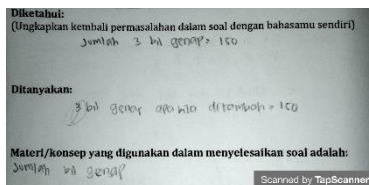 Diketahui:
(Ungkapkan kembali permasalahan dalam soal dengan bahasamu sendiri)
Jumlah 3 bil genap = 150
Ditanyakan:
3 bil genap apa bila ditambah = 150
Materi/konsep yang digunakan dalam menyelesaikan soal adalah:
Jumlah bil genap
Scanned by TapScanner